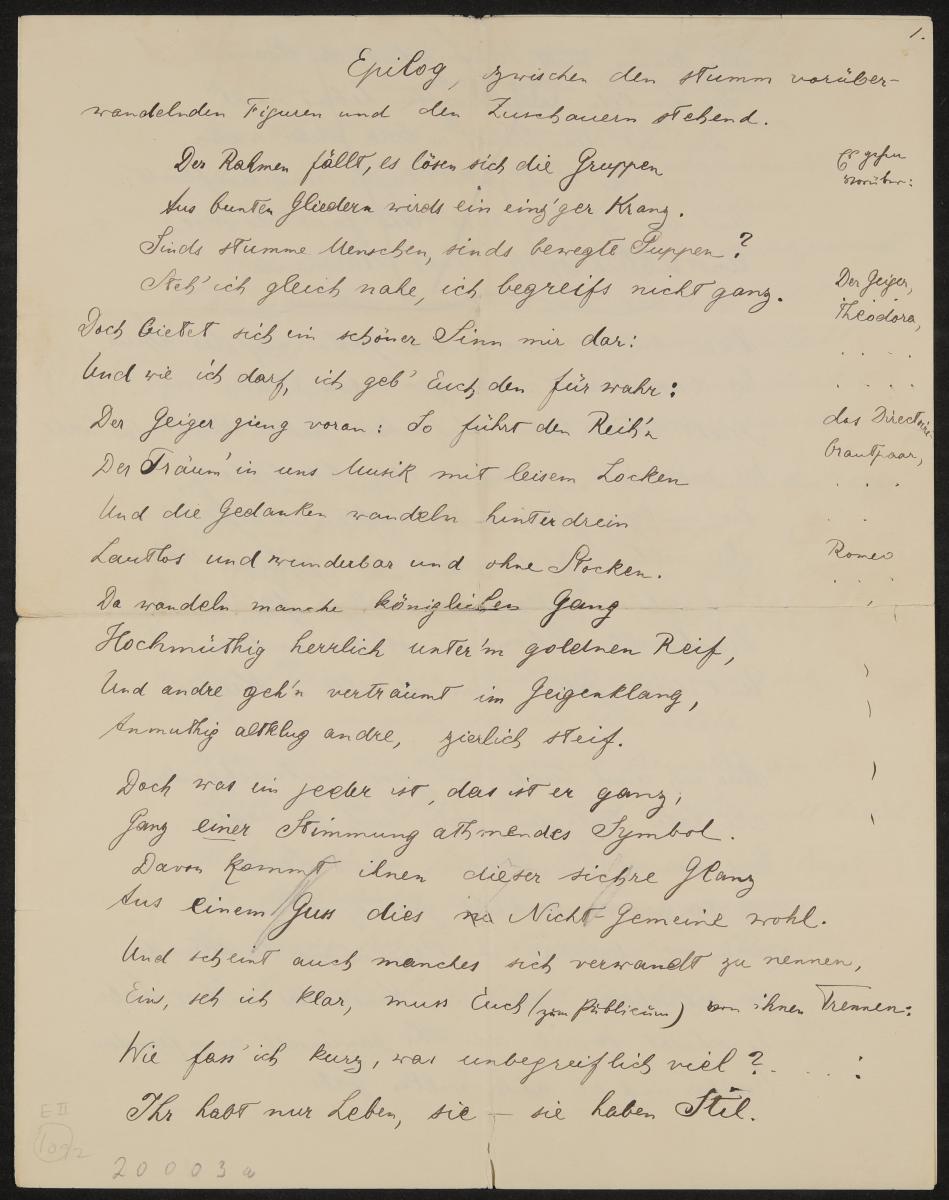 1.
Epilog, zwischen den stumm vorüber-
wandelnden Figuren und den Zuschauern stehend.
Der Rahmen fällt, es lösen sich die Gruppen
Aus bunten Gliedern wirds ein einz'ger Kranz.
Sinds stumme Menschen, sinds bewegte Puppen?
Steh' ich gleich nahe, ich begreifs nicht ganz.
Doch bietet sich ein schöner Sinn mir dar:
Und wie ich darf, ich geb' Euch den für wahr:
Der Geiger gieng voran: So führt den Reih'n
Der Träum' in uns Musik mit leisem Locken
Und die Gedanken wandeln hinterdrein
Lautlos und wunderbar und ohne Stocken.
Da wandeln manche königlichen Gang
Hochmüthig herrlich unter'm goldnen Reif,
Und andre geh'n verträumt im Geigenklang,
Anmuthig altklug andre, zierlich steif.
Doch was ein jeder ist, das ist er ganz,
Ganz einer Stimmung athmendes Symbol.
Davon kommt ihnen dieser sichre Glanz
Aus einem Guss dies Nicht-Gemeine wohl.
Und scheint auch manches sich verwandt zu nennen,
Ein, seh ich klar, muss Euch (zum Publicum) von ihnen Trennen:
Wie fass' ich kurz, was unbegreiflich viel? . . . . :
Ihr habt nur Leben, sie – sie haben Stil.
Es gehen
vorüber:
Der Geiger,
Theodora,
. . . .
. . . .
das Directoire
brautpaar,
. . .
. .
Romeo
. . .
E II
109/2
20003a